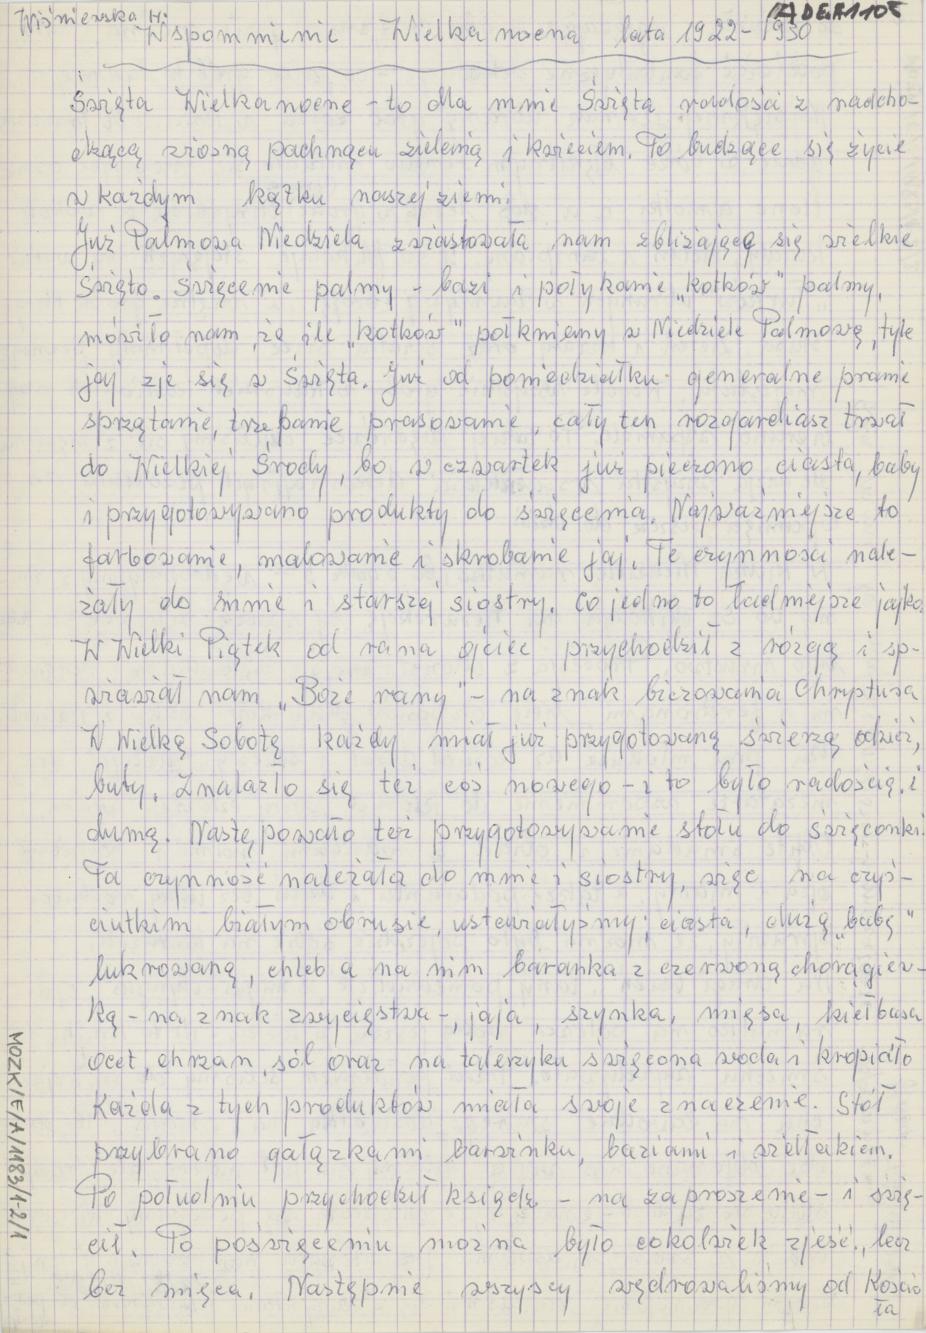 Wiśniewska H.
IADEiA 1105
Wspomnienie Wielkanocna lata 1922-1930
Święta Wielkanocne - to dla mnie Święta radości z nadcho-
dzącą wiosną pachnącą zielenią i kwieciem. To budzące się życie
w każdym kątku naszej ziemi.
Już Palmowa Niedziela zwiastowała nam zbliżającę się wielkie
Święto. Święcenie palmy - bazi i połykanie „kotków" palmy,
mówiło nam, że ile „kotków" połkniemy w Niedziele Palmową, tyle
jaj zje się w Święta. Już od poniedziałku generalne pranie
sprzątanie, trzepanie prasowanie, cały ten rozgardiasz trwał
do Wielkiej Środy, bo w czwartek już pieczono ciasta, baby
i przygotowywano produkty do święcenia. Najważniejsze to
farbowanie, malowanie i skrobanie jaj. Te czynności nale-
żały do mnie i starszej siostry. Co jedno to ładniejsze jajko.
W Wielki Piątek od rana ojciec przychodził z rózgą i sp-
wiawiał nam „Boże rany" - na znak biczowania Chrystusa
W Wielką Sobotę każdy miał już przygotowaną świeżą odzież,
buty. Znalazło się też coś nowego - i to było radością i
dumą. Następowało też przygotowywanie stołu do święconki.
Ta czynność należała do mnie i siostry, więc na czyś-
ciutkim białym obrusie, ustawiałyśmy; ciasta, dużą „babę"
lukrowaną, chleb a na nim baranka z czerwoną chorągiew-
ką - na znak zwycięstwa -, jaja, szynka, mięsa, kiełbasa
ocet, chrzan, sól oraz na talerzyku święcona woda i kropidło
Każda z tych produktów miała swoje znaczenie. Stół
przybrano gałązkami barwinku, baziami i widłakiem.
Po południu przychodził ksiądz - na zaproszenie - i świę-
cił. Po poświęceniu można było cokolwiek zjeść, lecz
bez mięsa. Następnie wszyscy wędrowaliśmy od Kościo
ła
MOZK/E/A/1183/1-2/1